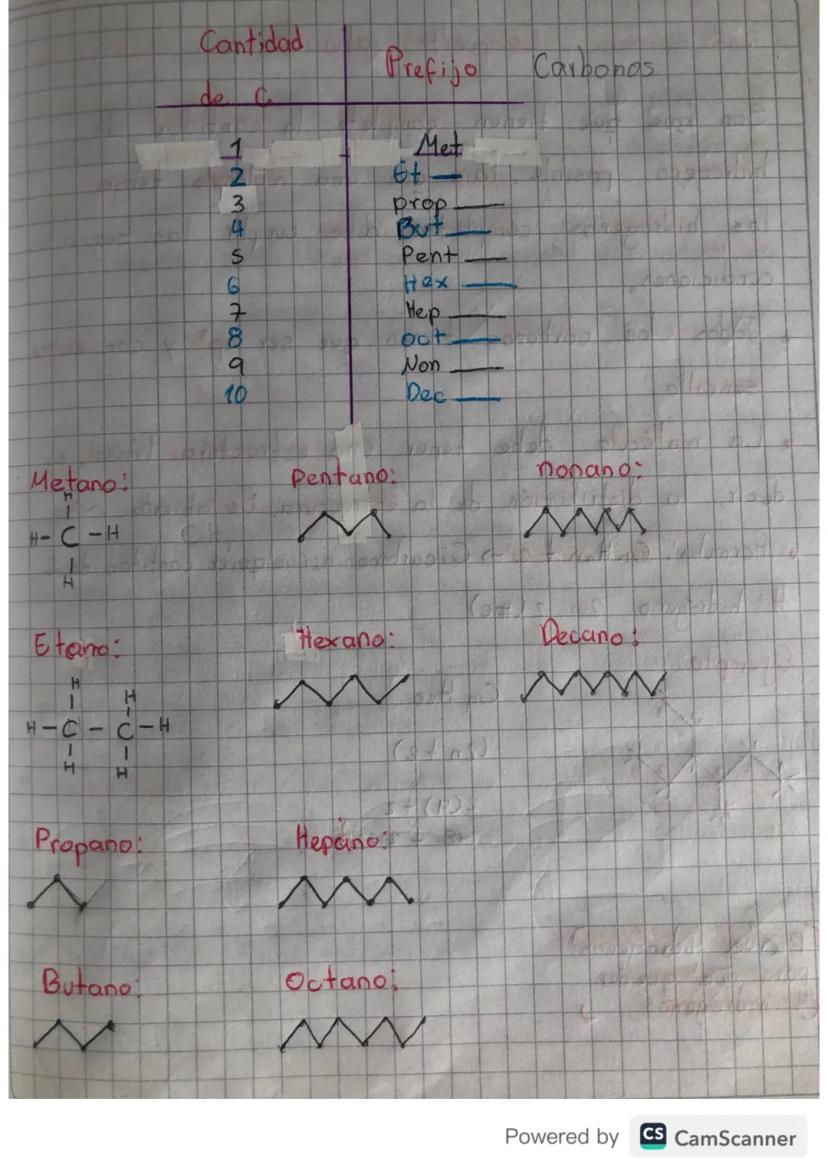 Cantidad de C. Prefijo Carbonos
1 Met
2 Et
3 prop
4 But
5 Pent
6 Hex
7 Hep
8 oct
9 Non
10 Dec
Metano: Pentano: nonano:
H
H - C - H
H
Etano: Hexano: Decano:
H H
H - C - C - H
H H
Propano: Hepano:
Butano: Octano:
Powered by CS CamScanner